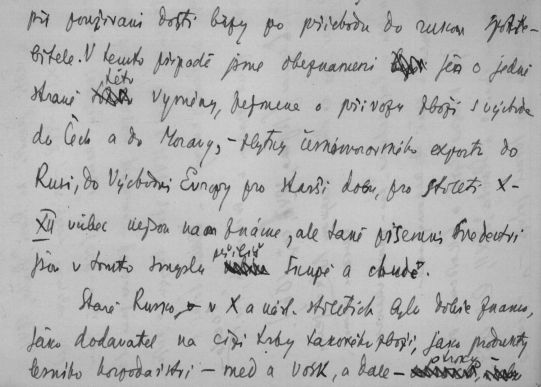 při používání dosti brzy po příchodu do rukou spotře-
bitele. V tomto případě jsme obeznámeni jen o jedné
straně této výměny, zejmena o přivozu zboží s východu
do Čech a do Moravy, – zbytky českomoravského exportu do
Rusi, do Východní Evropy pro starší dobu, pro století X–
XII vůbec nejsou nám známe, ale také písemní svědectví
jsou v tomto smyslu příliš skoupé a chudé.
Staré Rusko, v X a násl. stoletích bylo dobře známo,
jako dodavatel na cizí trhy takového zboží, jako produkty
lesního hospodářství – med a vosk, a dale –